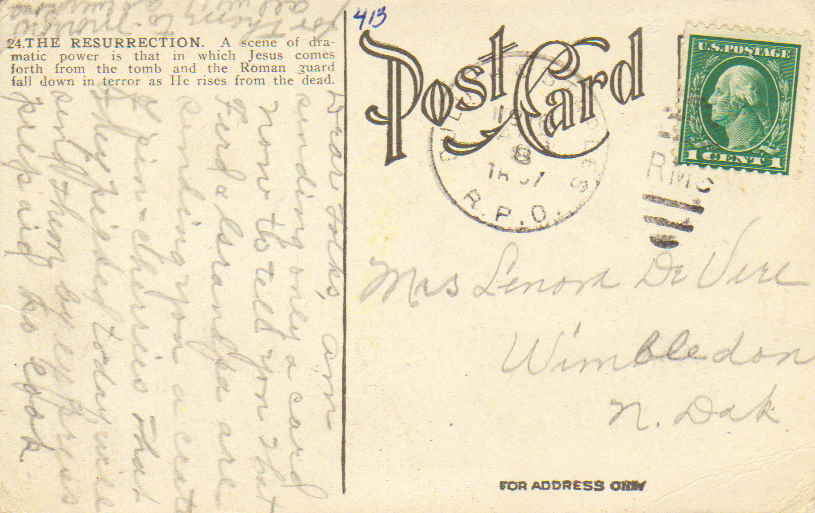 413
24. THE RESURRECTION. A scene of dra-
matic power is that in which Jesus comes
forth from the tomb and the Roman guard
fall down in terror as He rises from the dead.
Post Card
U.S. POSTAGE
1 CENT 1
8
R.P.O.
RMS
Mrs Lenora De Vere
Wimbledon
N. Dak.
FOR ADDRESS ONLY
Dear Folks, am
sending only a card
now to tell you that
Ferd & Grandpa are
sending you a crate
of pin-cherries that
they picked today were
sent them by express
prepaid to cook